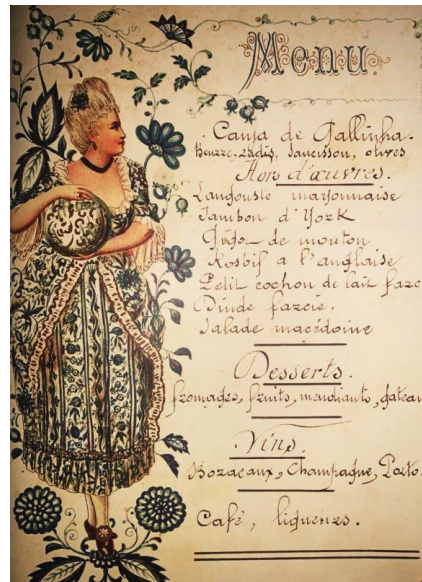 Menu
Canja de Gallinha.
Beurre, radis, saucisson, olives
Hors d'œuvres.
Langouste mayonnaise
Jambon d'York
Gigot de mouton
Rosbif a l'anglaise
Petit cochon de lait farc
Dinde farcie.
Salade macédoine
Desserts.
fromages, fruits, mendiants, gateau
Vins.
Bordeaux, Champagne, Porto.
Café, liqueurs.